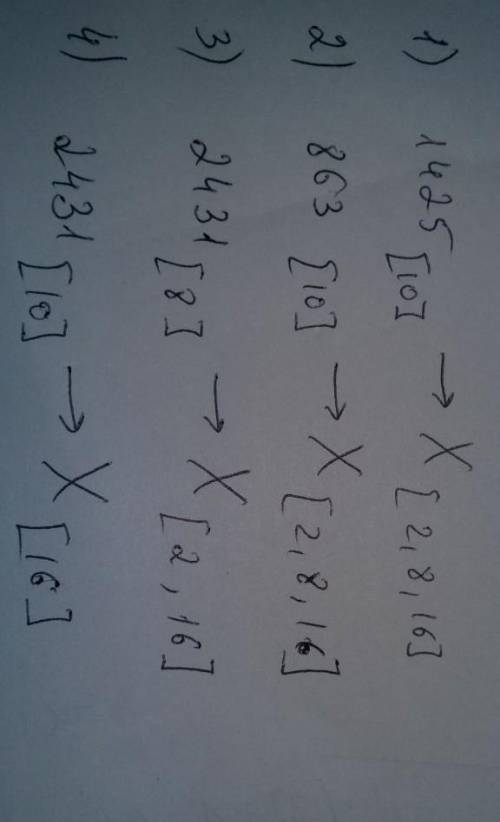 1) 1425 [10] → X [2, 8, 16]
2) 863 [10] → X [2, 8, 16]
3) 2431 [8] → X [2, 16]
4) 2431 [10] → X [16]